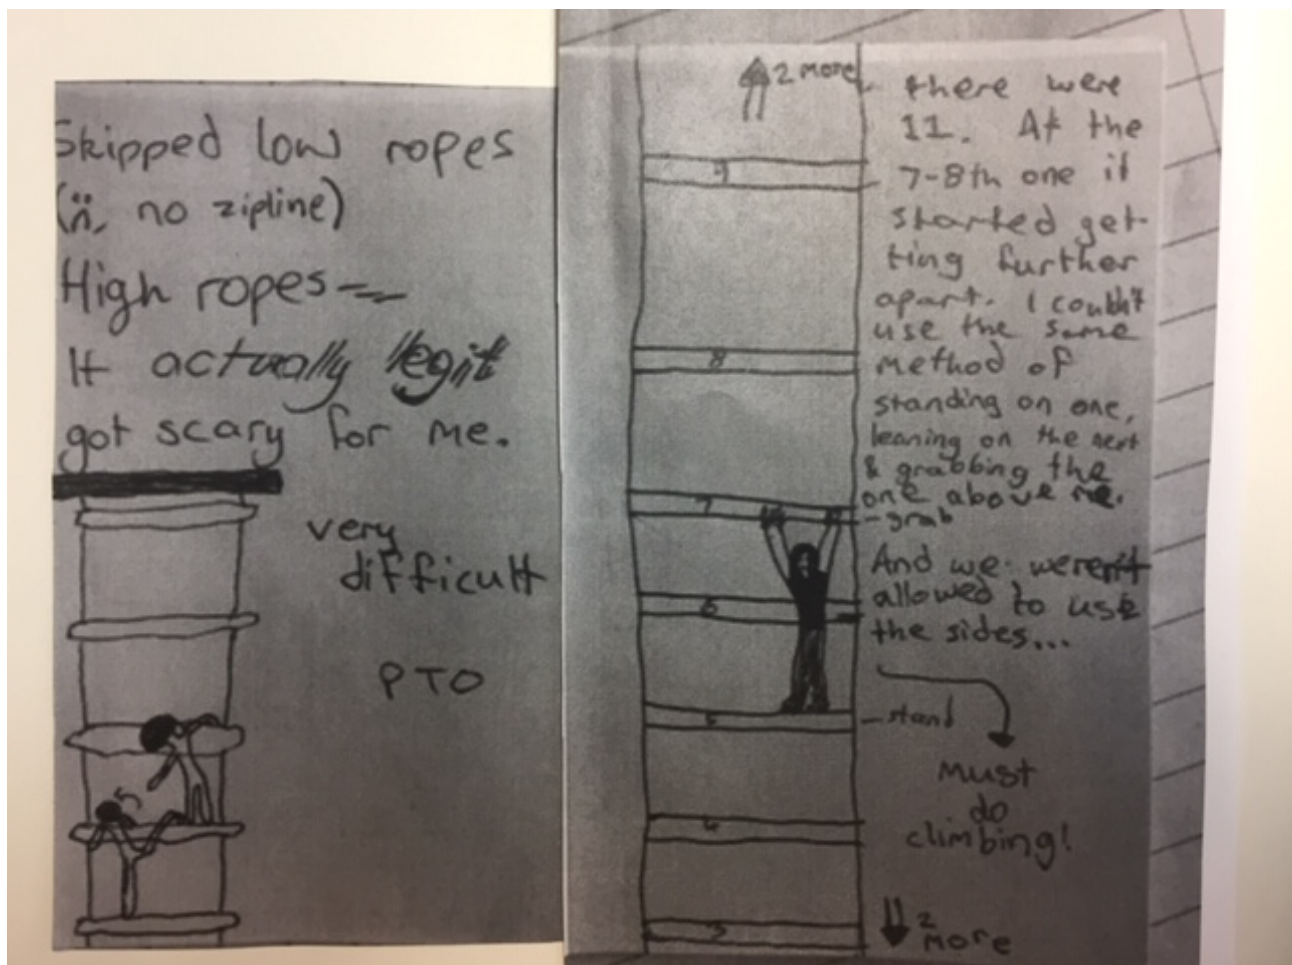 Skipped low ropes
(ü, no zipline)
High ropes —
It actually legit
got scary for me.
very
difficult
PTO
2 more
9
8
7
6
5
4
3
there were
11. At the
7-8th one it
started get-
ting further
apart. I couldn't
use the same
method of
standing on one,
leaning on the next
& grabbing the
one above me.
-grab
And we weren't
allowed to use
the sides...
-stand
Must
do
climbing!
2
more